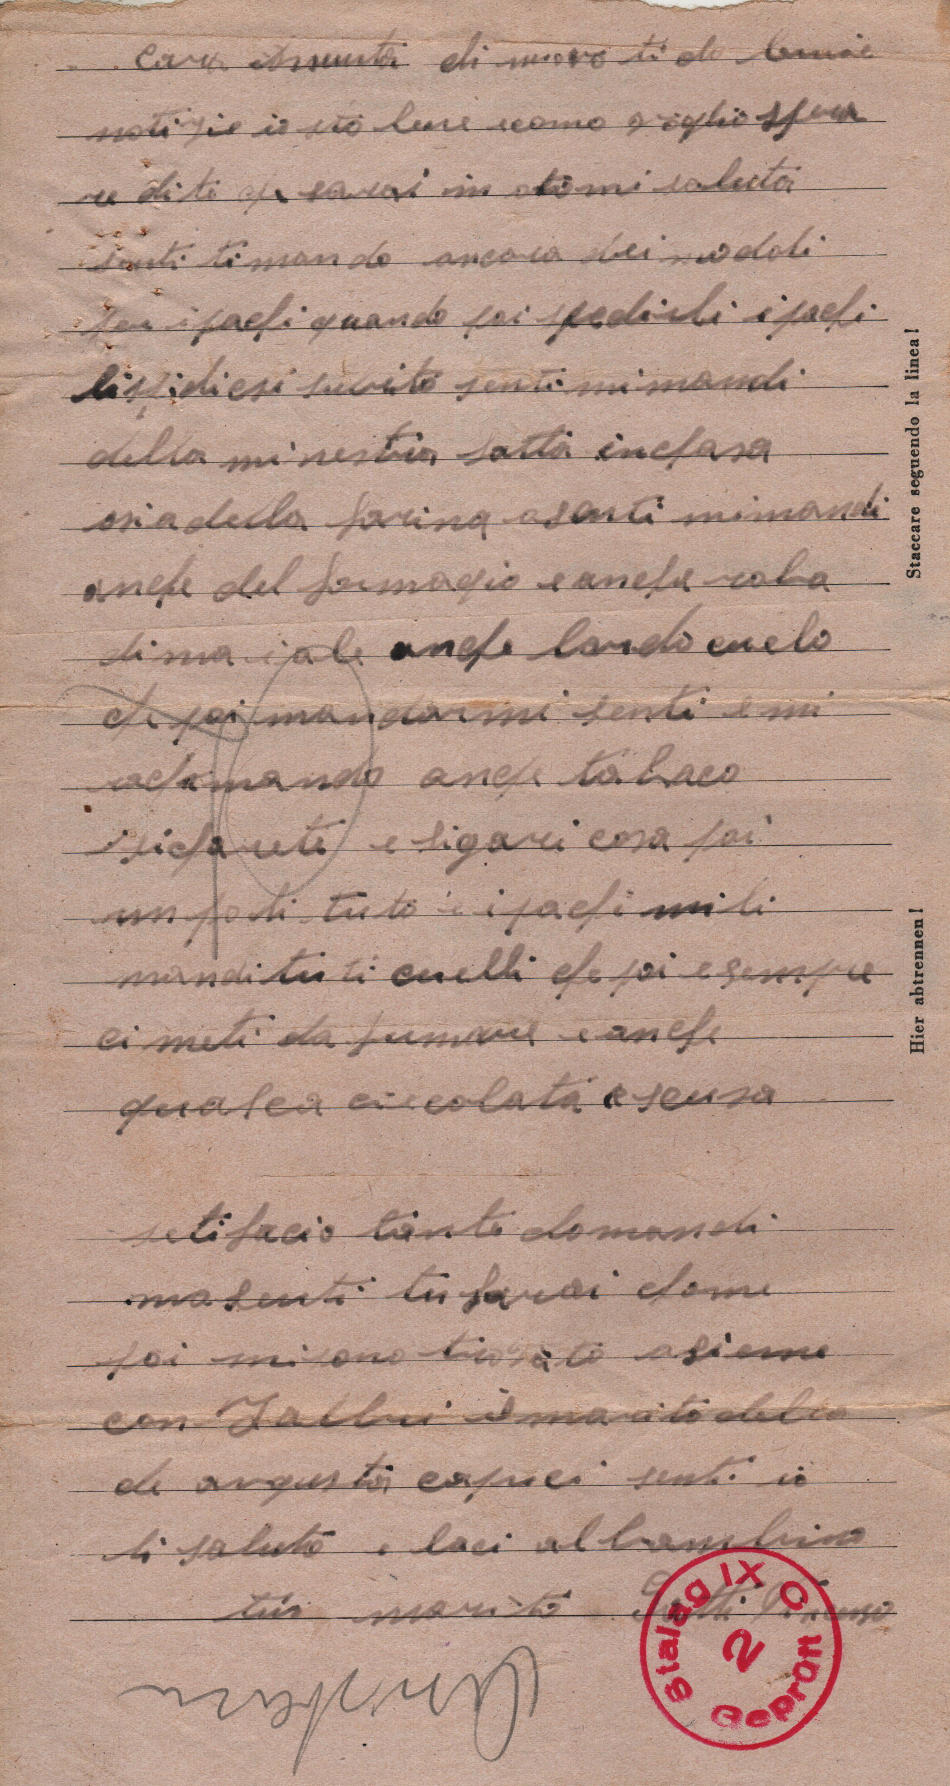 Cara Assunta di nuovo ti do buone
notizie io sto bene ecomo voglio spera
re di te che sarai in otimi saluta
senti ti mando ancora dei modoli
per i pachi quando poi spedirli i pachi
li spidiesi subito senti mi mandi
della minestra fatta inchasa
osia della farina a senti mimandi
anche del formagio e anche roba
di maiale anche lardo cuelo
che poi mandarmi senti e mi
rachomando anche tabaco
sichareti e sigari cosa poi
un po di tuto e i pachi mili
mandi tuti cuelli che poi e sempre
ci meti da fumare e anche
qualca ciecolata e scusa
setifacio tante domandi
ma senti tu farai chome
poi mi sono trovato asieme
con Jalbri il marito della
de argusta capuci senti io
ti saluto e baci al bambino
tuo marito
Stalag IX C
2
Geprüft
Staccare seguendo la linea!
Hier abtrennen!